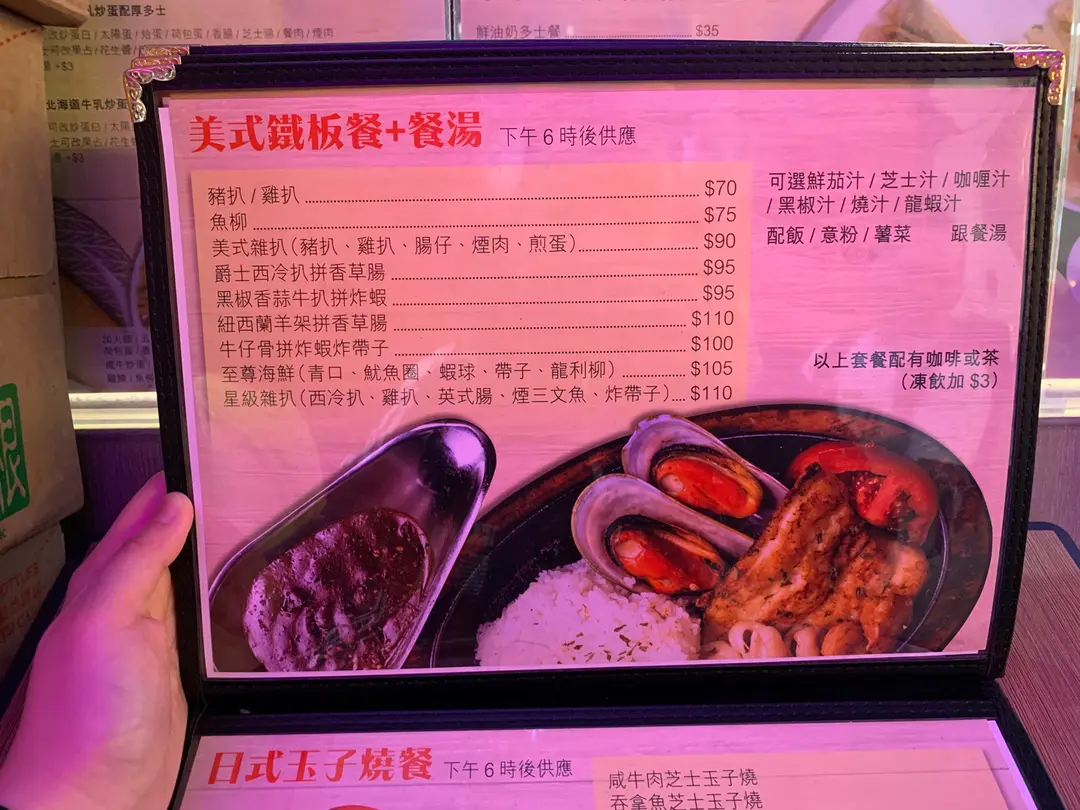 乳炒蛋配厚多士
鮮油奶多士餐 $35
+$3
北海道牛乳炒蛋
+$3
美式鐵板餐+餐湯 下午6時後供應
豬扒 / 雞扒 $70
魚柳 $75
美式雜扒(豬扒、雞扒、腸仔、煙肉、煎蛋) $90
爵士西冷扒拼香草腸 $95
黑椒香蒜牛扒拼炸蝦 $95
紐西蘭羊架拼香草腸 $110
牛仔骨拼炸蝦炸帶子 $100
至尊海鮮(青口、魷魚圈、蝦球、帶子、龍利柳) $105
星級雜扒(西冷扒、雞扒、英式腸、煙三文魚、炸帶子) $110
可選鮮茄汁 / 芝士汁 / 咖喱汁
/ 黑椒汁 / 燒汁 / 龍蝦汁
配飯 / 意粉 / 薯菜 跟餐湯
以上套餐配有咖啡或茶
(凍飲加 $3)
日式玉子燒餐 下午6時後供應
咸牛肉芝士玉子燒
吞拿魚芝士玉子燒